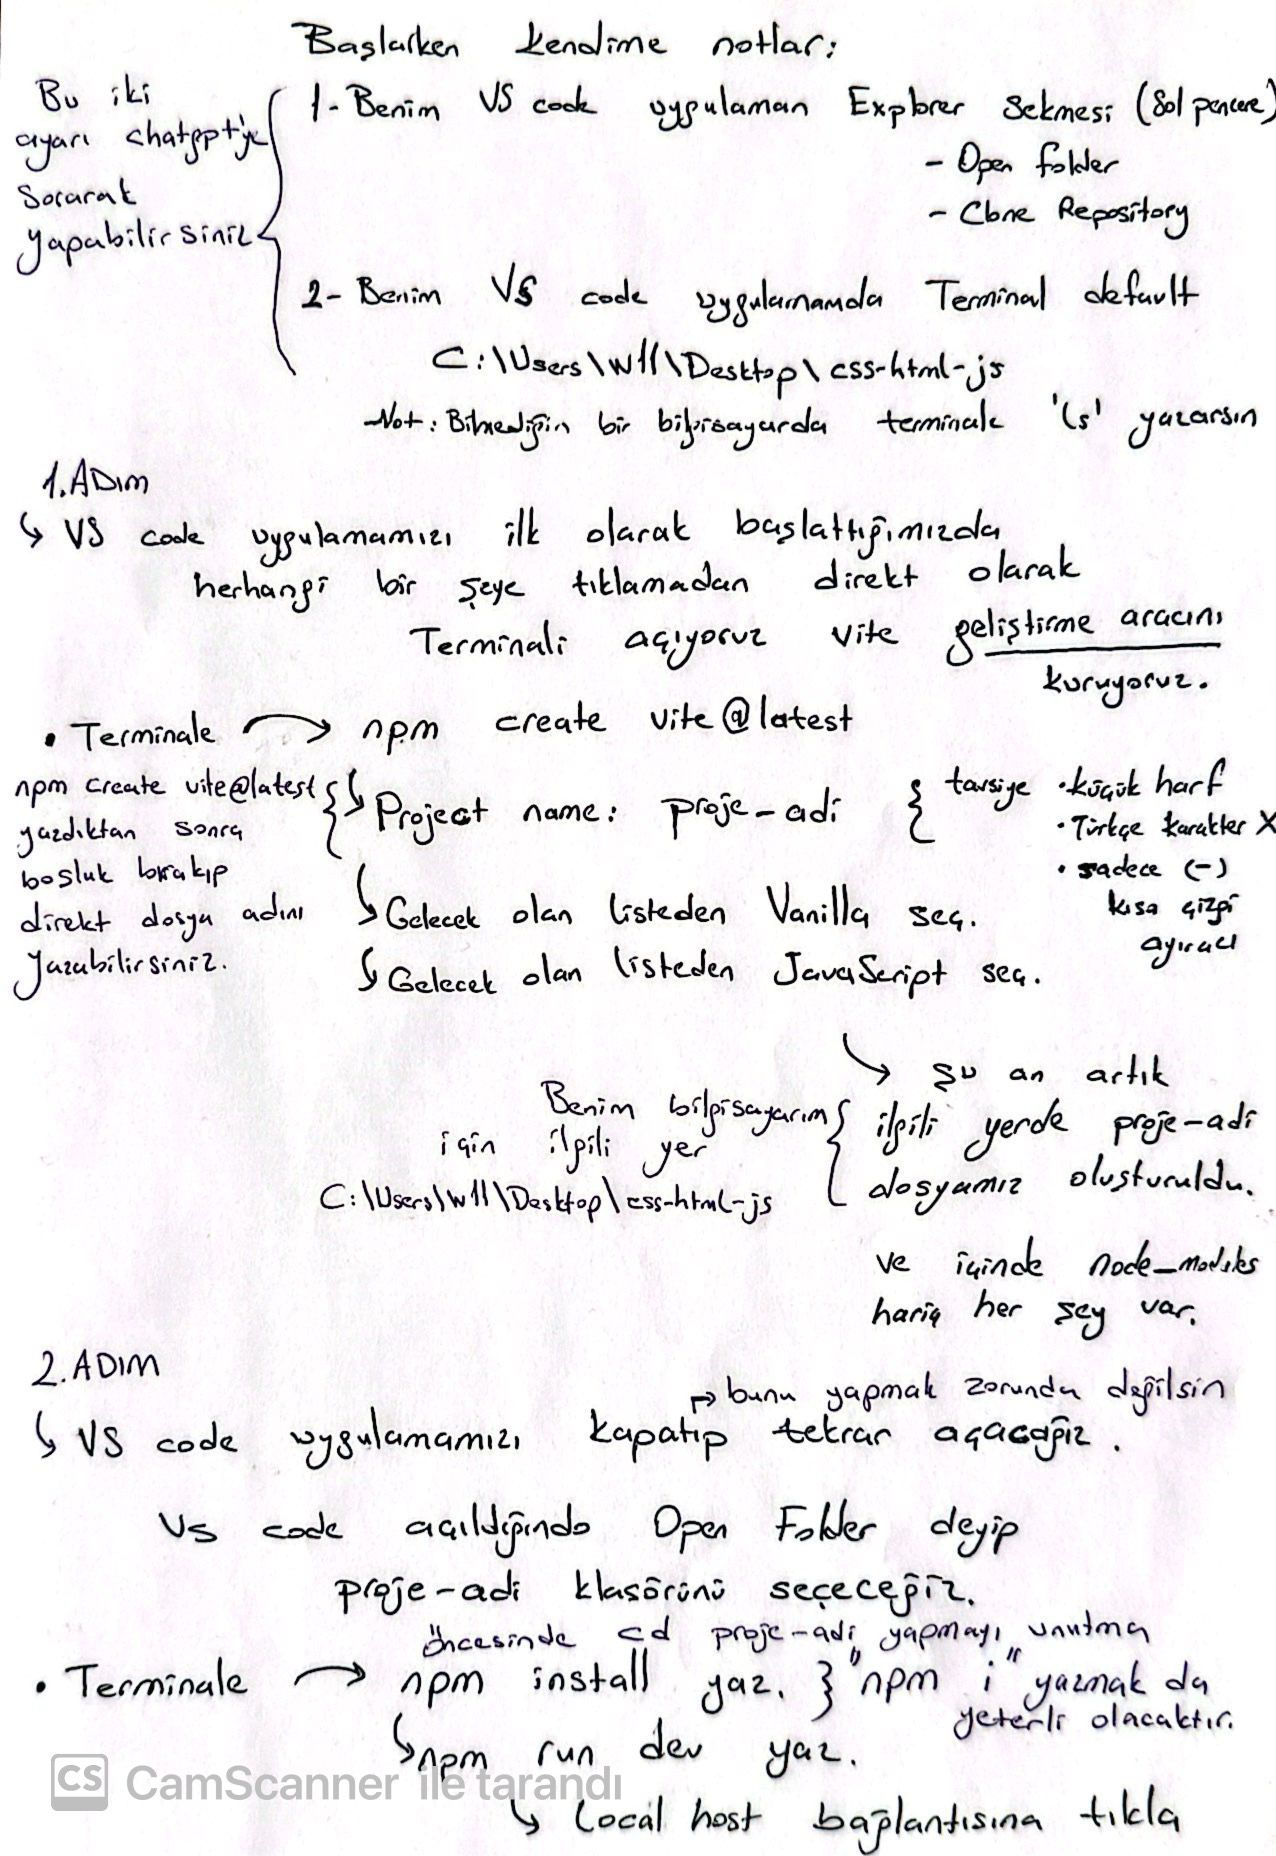 Başlarken kendime notlar:
Bu iki
ayarı chatgpt'ye
sorarak
yapabilirsiniz
1- Benim VS code uygulaman Explorer Sekmesi (Sol pencere)
- Open folder
- Clone Repository
2- Benim VS code uygulamamda Terminal default
C:\Users\W11\Desktop\css-html-js
Not: Bilmediğin bir bilgisayarda terminale 'ls' yazarsın
1. ADIM
↳ VS code uygulamamızı ilk olarak başlattığımızda
herhangi bir şeye tıklamadan direkt olarak
Terminali açıyoruz vite geliştirme aracını
kuruyoruz.
• Terminale → npm create vite@latest
npm create vite@latest
yazdıktan sonra
bosluk bırakıp
direkt dosya adını
yazabilirsiniz.
↳ Project name: proje-adi { tavsiye • küçük harf
• Türkçe karakter X
• sadece (-)
kısa çizgi
ayıracı
↳ Gelecek olan listeden Vanilla seç.
↳ Gelecek olan listeden JavaScript seç.
↘ Şu an artık
ilgili yerde proje-adi
dosyamız oluşturuldu.
Benim bilgisayarım
için ilgili yer
C:\Users\W11\Desktop\css-html-js
ve içinde node_modules
hariç her şey var.
2. ADIM
↱ bunu yapmak zorunda değilsin
↳ VS code uygulamamızı kapatıp tekrar açacağız.
VS code açıldığında Open Folder deyip
proje-adi klasörünü seçeceğiz.
öncesinde cd proje-adi yapmayı unutma
• Terminale → npm install yaz. } "npm i" yazmak da
yeterli olacaktır.
↳ npm run dev yaz.
↳ Local host bağlantısına tıkla
CS CamScanner ile tarandı